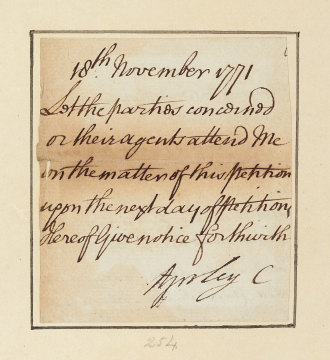 18th November 1771
Let the parties concerned
or their agents attend Me
on the matter of this petition
upon the next day of petitions
hereof Give notice forthwith
Apsley C
254